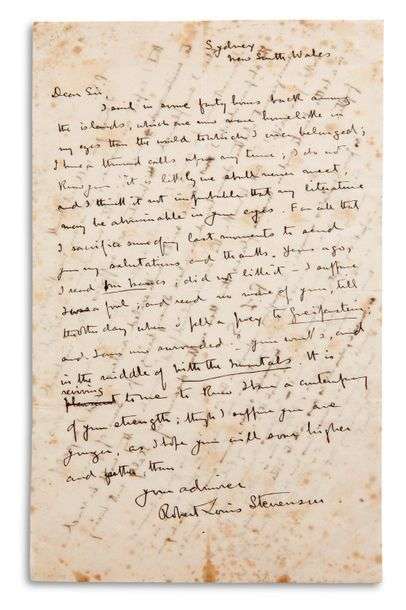 Sydney
New South Wales
Dear Sir,
I sail in some forty hours back among
the islands, which are now more homelike in
my eyes than the world to which I once belonged;
I have a thousand calls upon my time; I do not
know you; it is likely we shall never meet,
and I think it not improbable that my literature
may be abominable in your eyes. For all that
I sacrifice some of my last moments to send
you my salutations and thanks. Years ago,
I read did not like it - I suppose
I was a fool, and read no more of you, till
th'other day, when I fell a prey to
and I am now surrounded your works, and
in the middle of With the Immortals. It is
reviving to me to know I have a contemporary
of your strength; though I suppose you are
younger, as I hope you will soar higher
and farther, than
your admirer
Robert Louis Stevenson